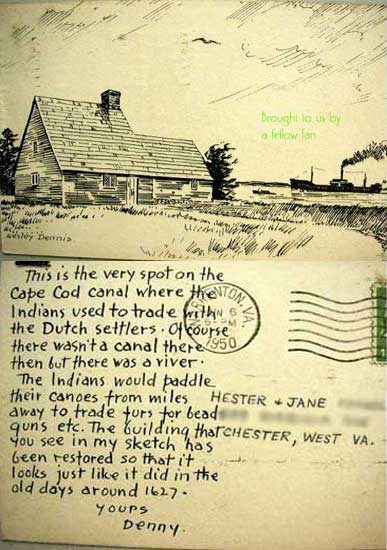 Brought to us by
a fellow fan
Wesley Dennis
This is the very spot on the
Cape Cod canal where the
Indians used to trade with
the Dutch settlers. Of course
there wasn't a canal there
then but there was a river.
The Indians would paddle
their canoes from miles
away to trade furs for bead
guns etc. The building that
you see in my sketch has
been restored so that it
looks just like it did in the
old days around 1627.
yours
Denny.
ENTON, VA.
6
1950
HESTER & JANE
CHESTER, WEST VA.